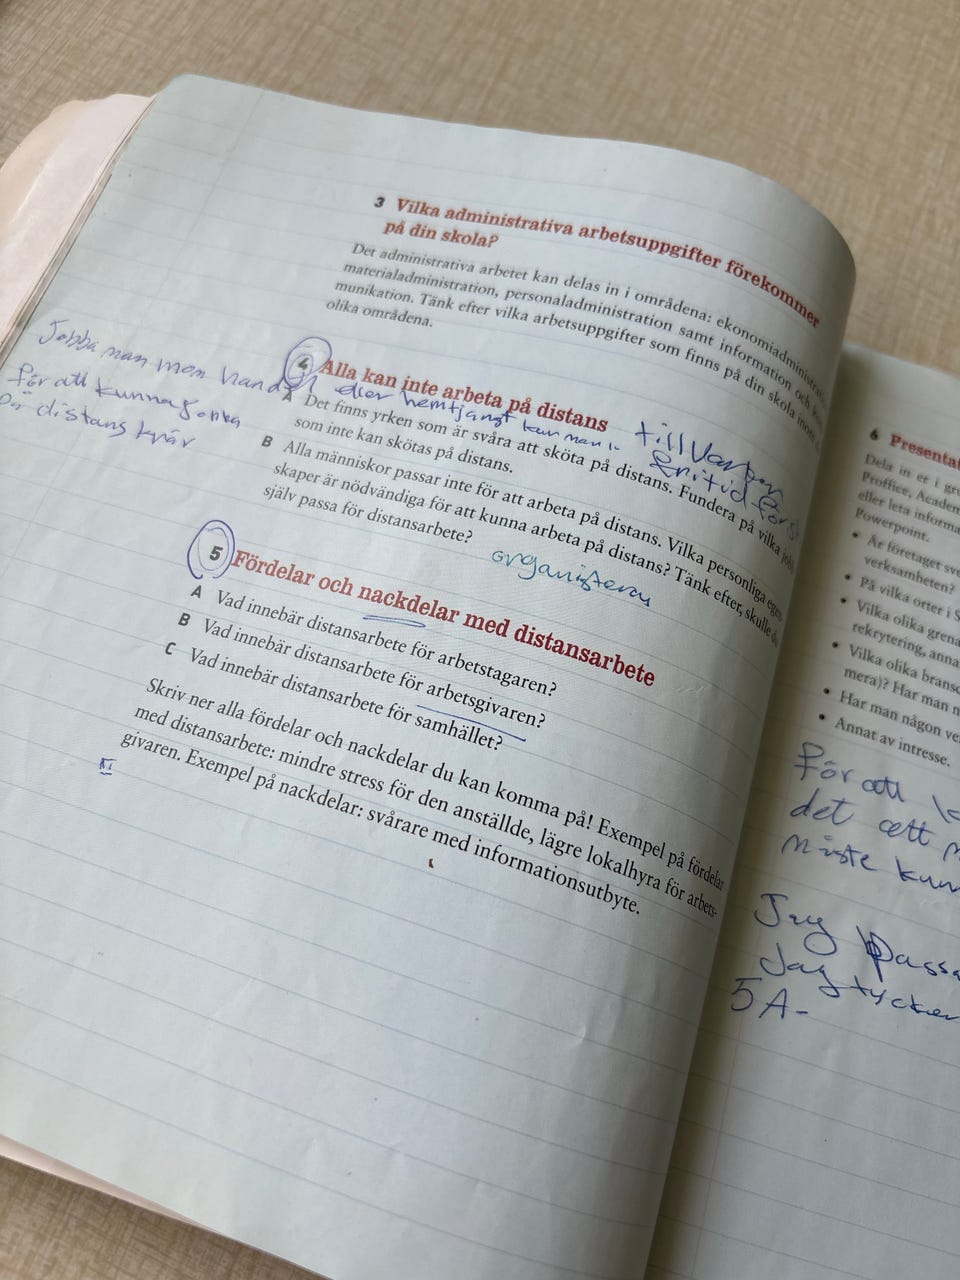 3 Vilka administrativa arbetsuppgifter förekommer
på din skola?
Det administrativa arbetet kan delas in i områdena: ekonomiadministration,
materialadministration, personaladministration samt information och
munikation. Tänk efter vilka arbetsuppgifter som finns på din skola inom
olika områdena.
Jobba man
för att kunna
distans
4 Alla kan inte arbeta på distans
eller hemtjänst kan man
A Det finns yrken som är svåra att sköta på distans. Fundera på vilka
som inte kan skötas på distans.
B Alla människor passar inte för att arbeta på distans. Vilka personliga egen
skaper är nödvändiga för att kunna arbeta på distans? Tänk efter, skulle du
själv passa för distansarbete?
organiseras
5 Fördelar och nackdelar med distansarbete
A Vad innebär distansarbete för arbetstagaren?
B Vad innebär distansarbete för arbetsgivaren?
C Vad innebär distansarbete för samhället?
Skriv ner alla fördelar och nackdelar du kan komma på! Exempel på fördelar
med distansarbete: mindre stress för den anställde, lägre lokalhyra för arbets-
givaren. Exempel på nackdelar: svårare med informationsutbyte.
6 Presentat
Dela in er i gr
Proffice, Acade
eller leta informa
Powerpoint.
• Är företaget sve
verksamheten?
• På vilka orter i S
• Vilka olika grena
rekrytering, anna
• Vilka olika bransc
mera)? Har man n
• Har man någon ve
• Annat av intresse.
för att
det att
måste kunn
Jag passa
Jag tycker
5A-